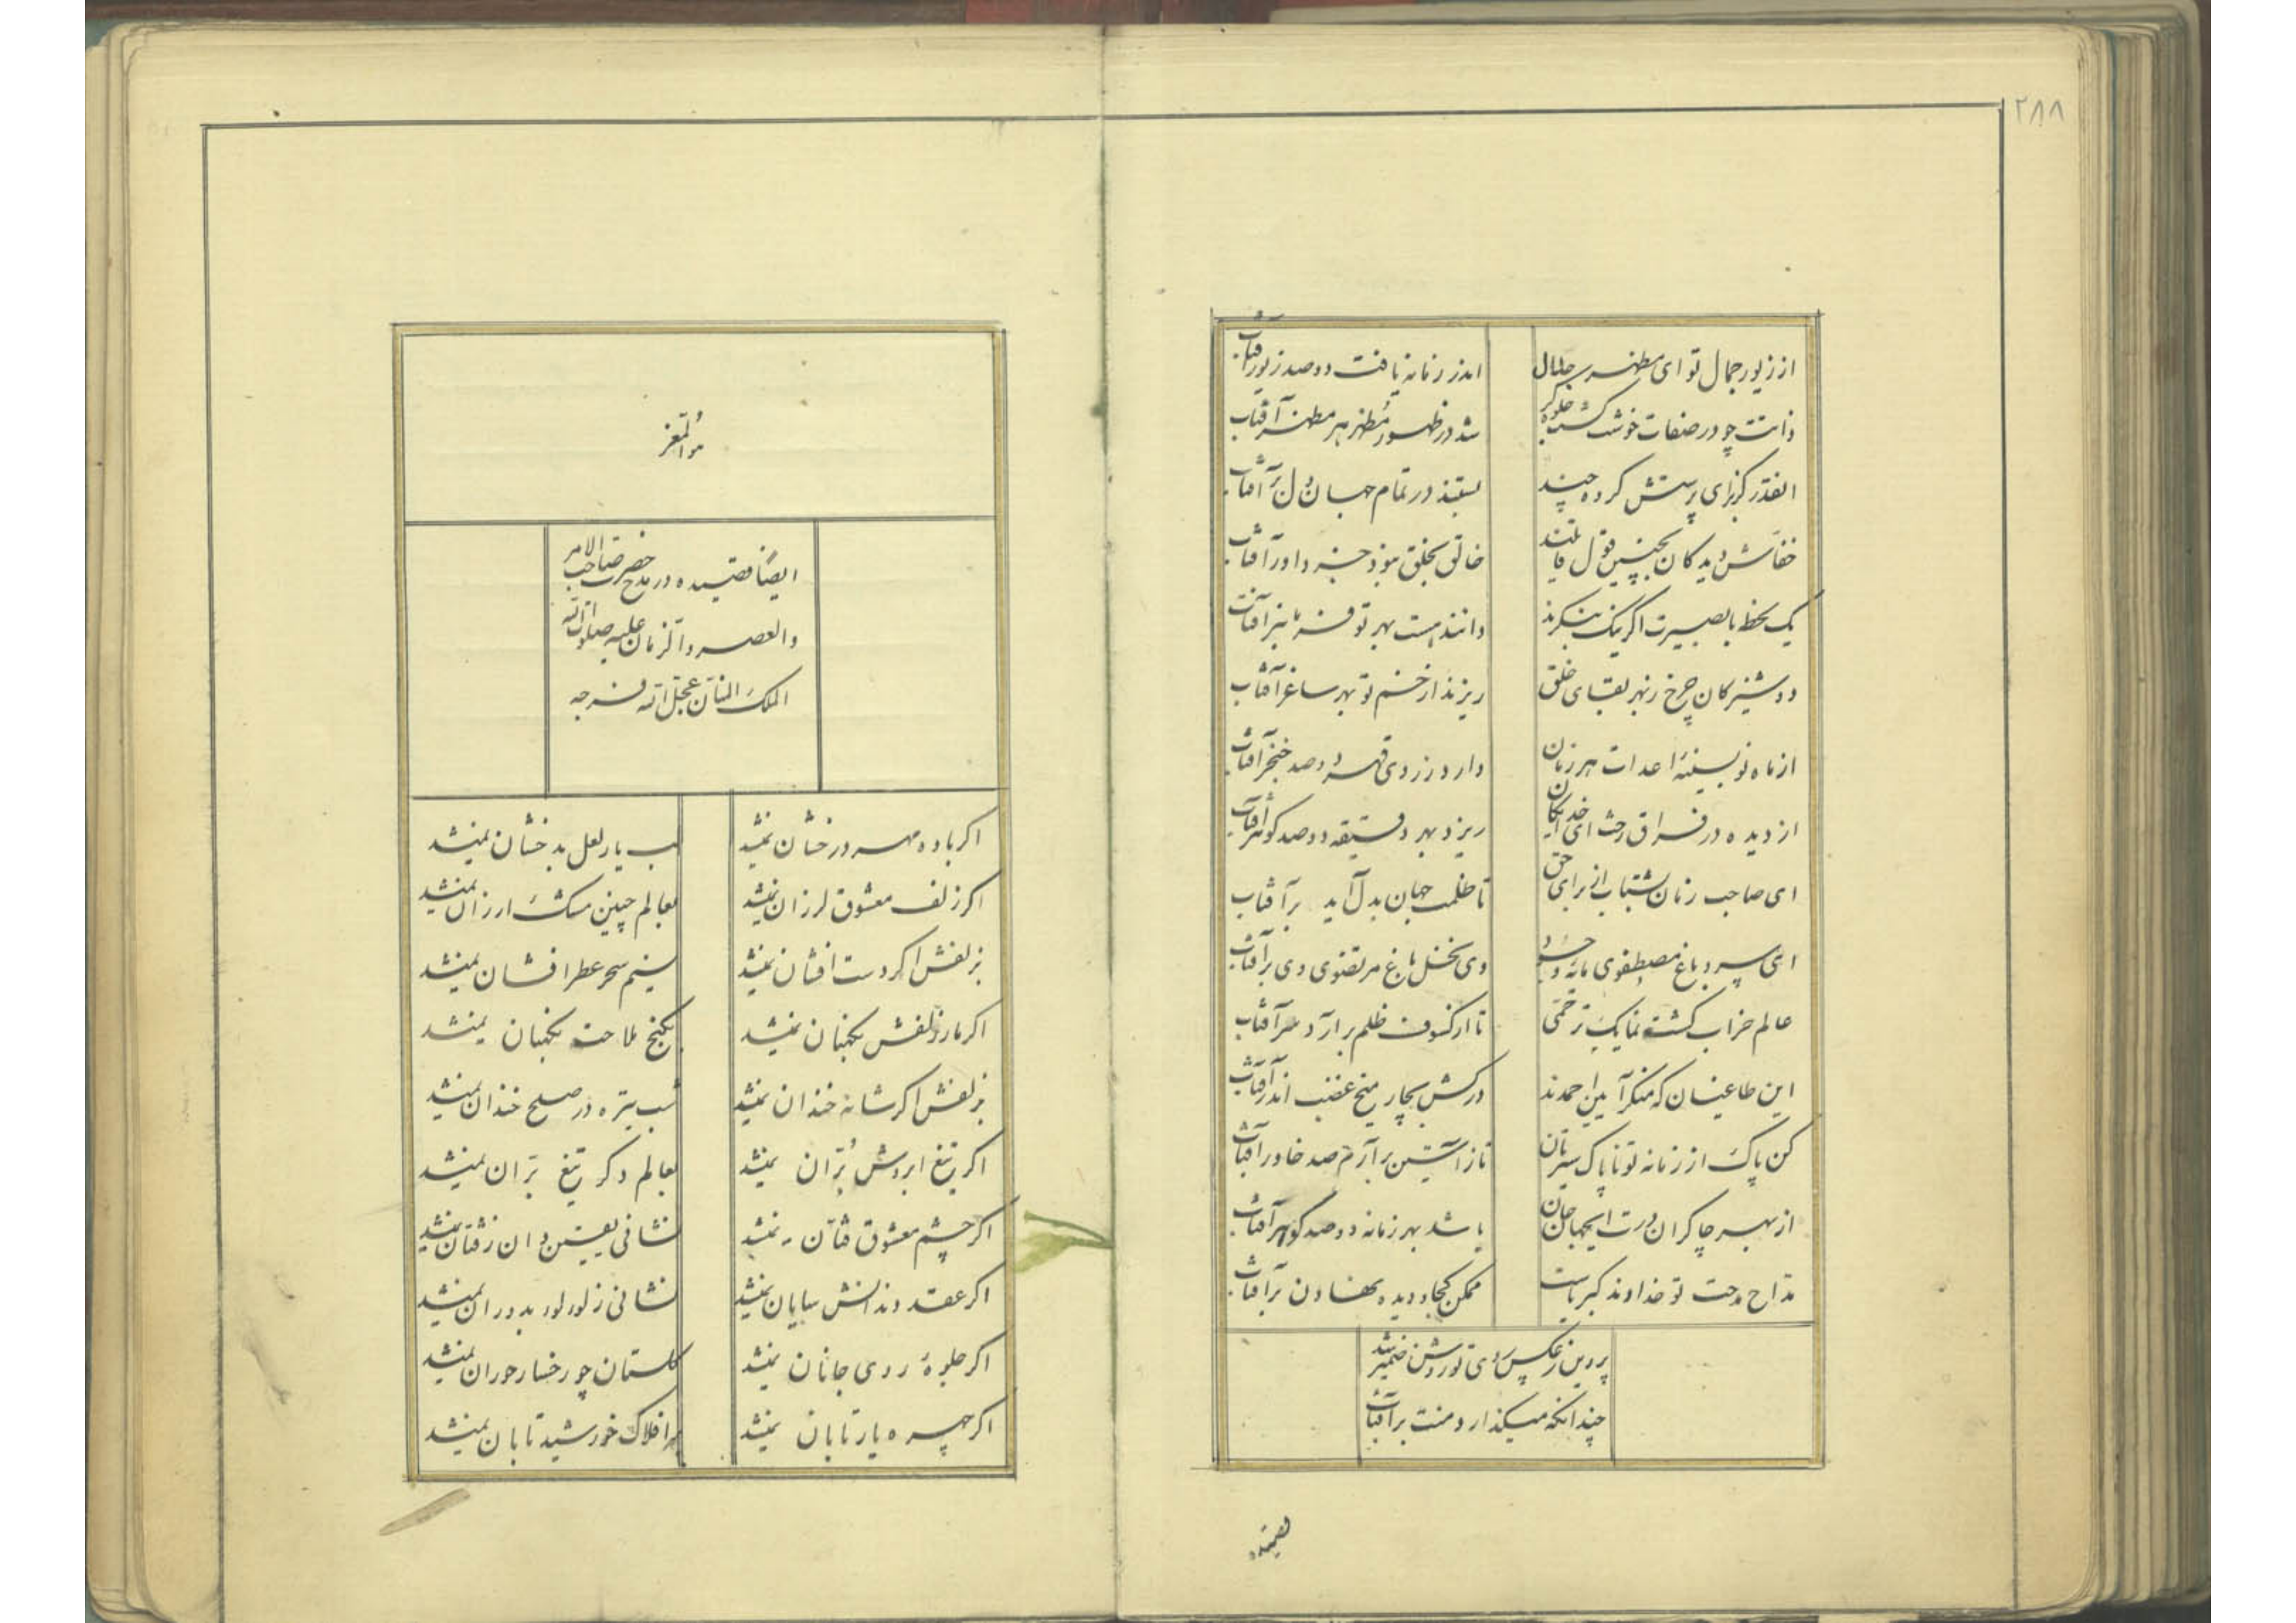 ۲۸۸
از زیور جمال تو ای مظهر جلال
اندر زمانه یافت دو صد زیور آفتاب
ذاتت چو در صفات خوشت گشت جلوه گر
شد در ظهور مظهر هر مظهر آفتاب
کرده چند
در تمام جهان آفتاب
خفاش دیدگان بچنین قول قایلند
خالق بخلق بوَد جز داور آفتاب
یک لحظ با بصیرت اگر نیک بنگرند
دانند هست بهر تو فرمانبر آفتاب
دوشیزگان چرخ ز بهر بقای خلق
ریزند از خم تو بهر ساغر آفتاب
از ماه نو بسینهٔ اعدات هر زمان
دارد ز روی قهر دو صد خنجر آفتاب
از دیده در فراق رخت ای خدایگان
ریزد بهر دقیقه دو صد گوهر آفتاب
ای صاحب زمان بشتاب از برای حق
تا ظلمت جهان بدل آید بر آفتاب
ای سرو باغ مصطفوی
وی نخل باغ مرتضوی وی بر آفتاب
عالم خراب گشت نما یک ترحمی
تا از کسوف ظلم بر آرد سر آفتاب
این طاغیان که منکر آیین احمدند
درکش بچار میخ غضب اندر آفتاب
کن پاک از زمانه تو ناپاک سیرتان
تا ز آستین بر آرم صد خاور آفتاب
از بهر چاکران درت ای جهان جان
باشد بهر زمانه دو صد گوهر آفتاب
مداح مدحت تو خداوند کبریاست
ممکن کجا و دیده نهادن بر آفتاب
پروین ز عکس روی تو روشن ضمیر شد
چندانکه میگذارد منت بر آفتاب
هو المعز
ایضاً قصیده در مدح حضرت صاحب الامر
والعصر والزمان علیه صلوات الله
الملک المنان عجل الله فرجه
اگر باده مهر درخشان نمیشد
لب یار لعل بدخشان نمیشد
اگر زلف معشوق لرزان نمیشد
بعالم چنین مشک ارزان نمیشد
بزلفش اگر دست افشان نمیشد
نسیم سحر عطر افشان نمیشد
اگر مار زلفش نگهبان نمیشد
بگنج ملاحت نگهبان نمیشد
بزلفش اگر شانه خندان نمیشد
شب تیره در صبح خندان نمیشد
اگر تیغ ابروش بُرّان نمیشد
بعالم دگر تیغ بران نمیشد
اگر چشم معشوق فتان نمیشد
نشانی
اگر عقد دندانش نمایان نمیشد
نشانی ز لولو بدوران نمیشد
اگر جلوهٔ روی جانان نمیشد
گلستان چو رخسار حوران نمیشد
اگر چهره یار تابان نمیشد
بر افلاک خورشید تابان نمیشد